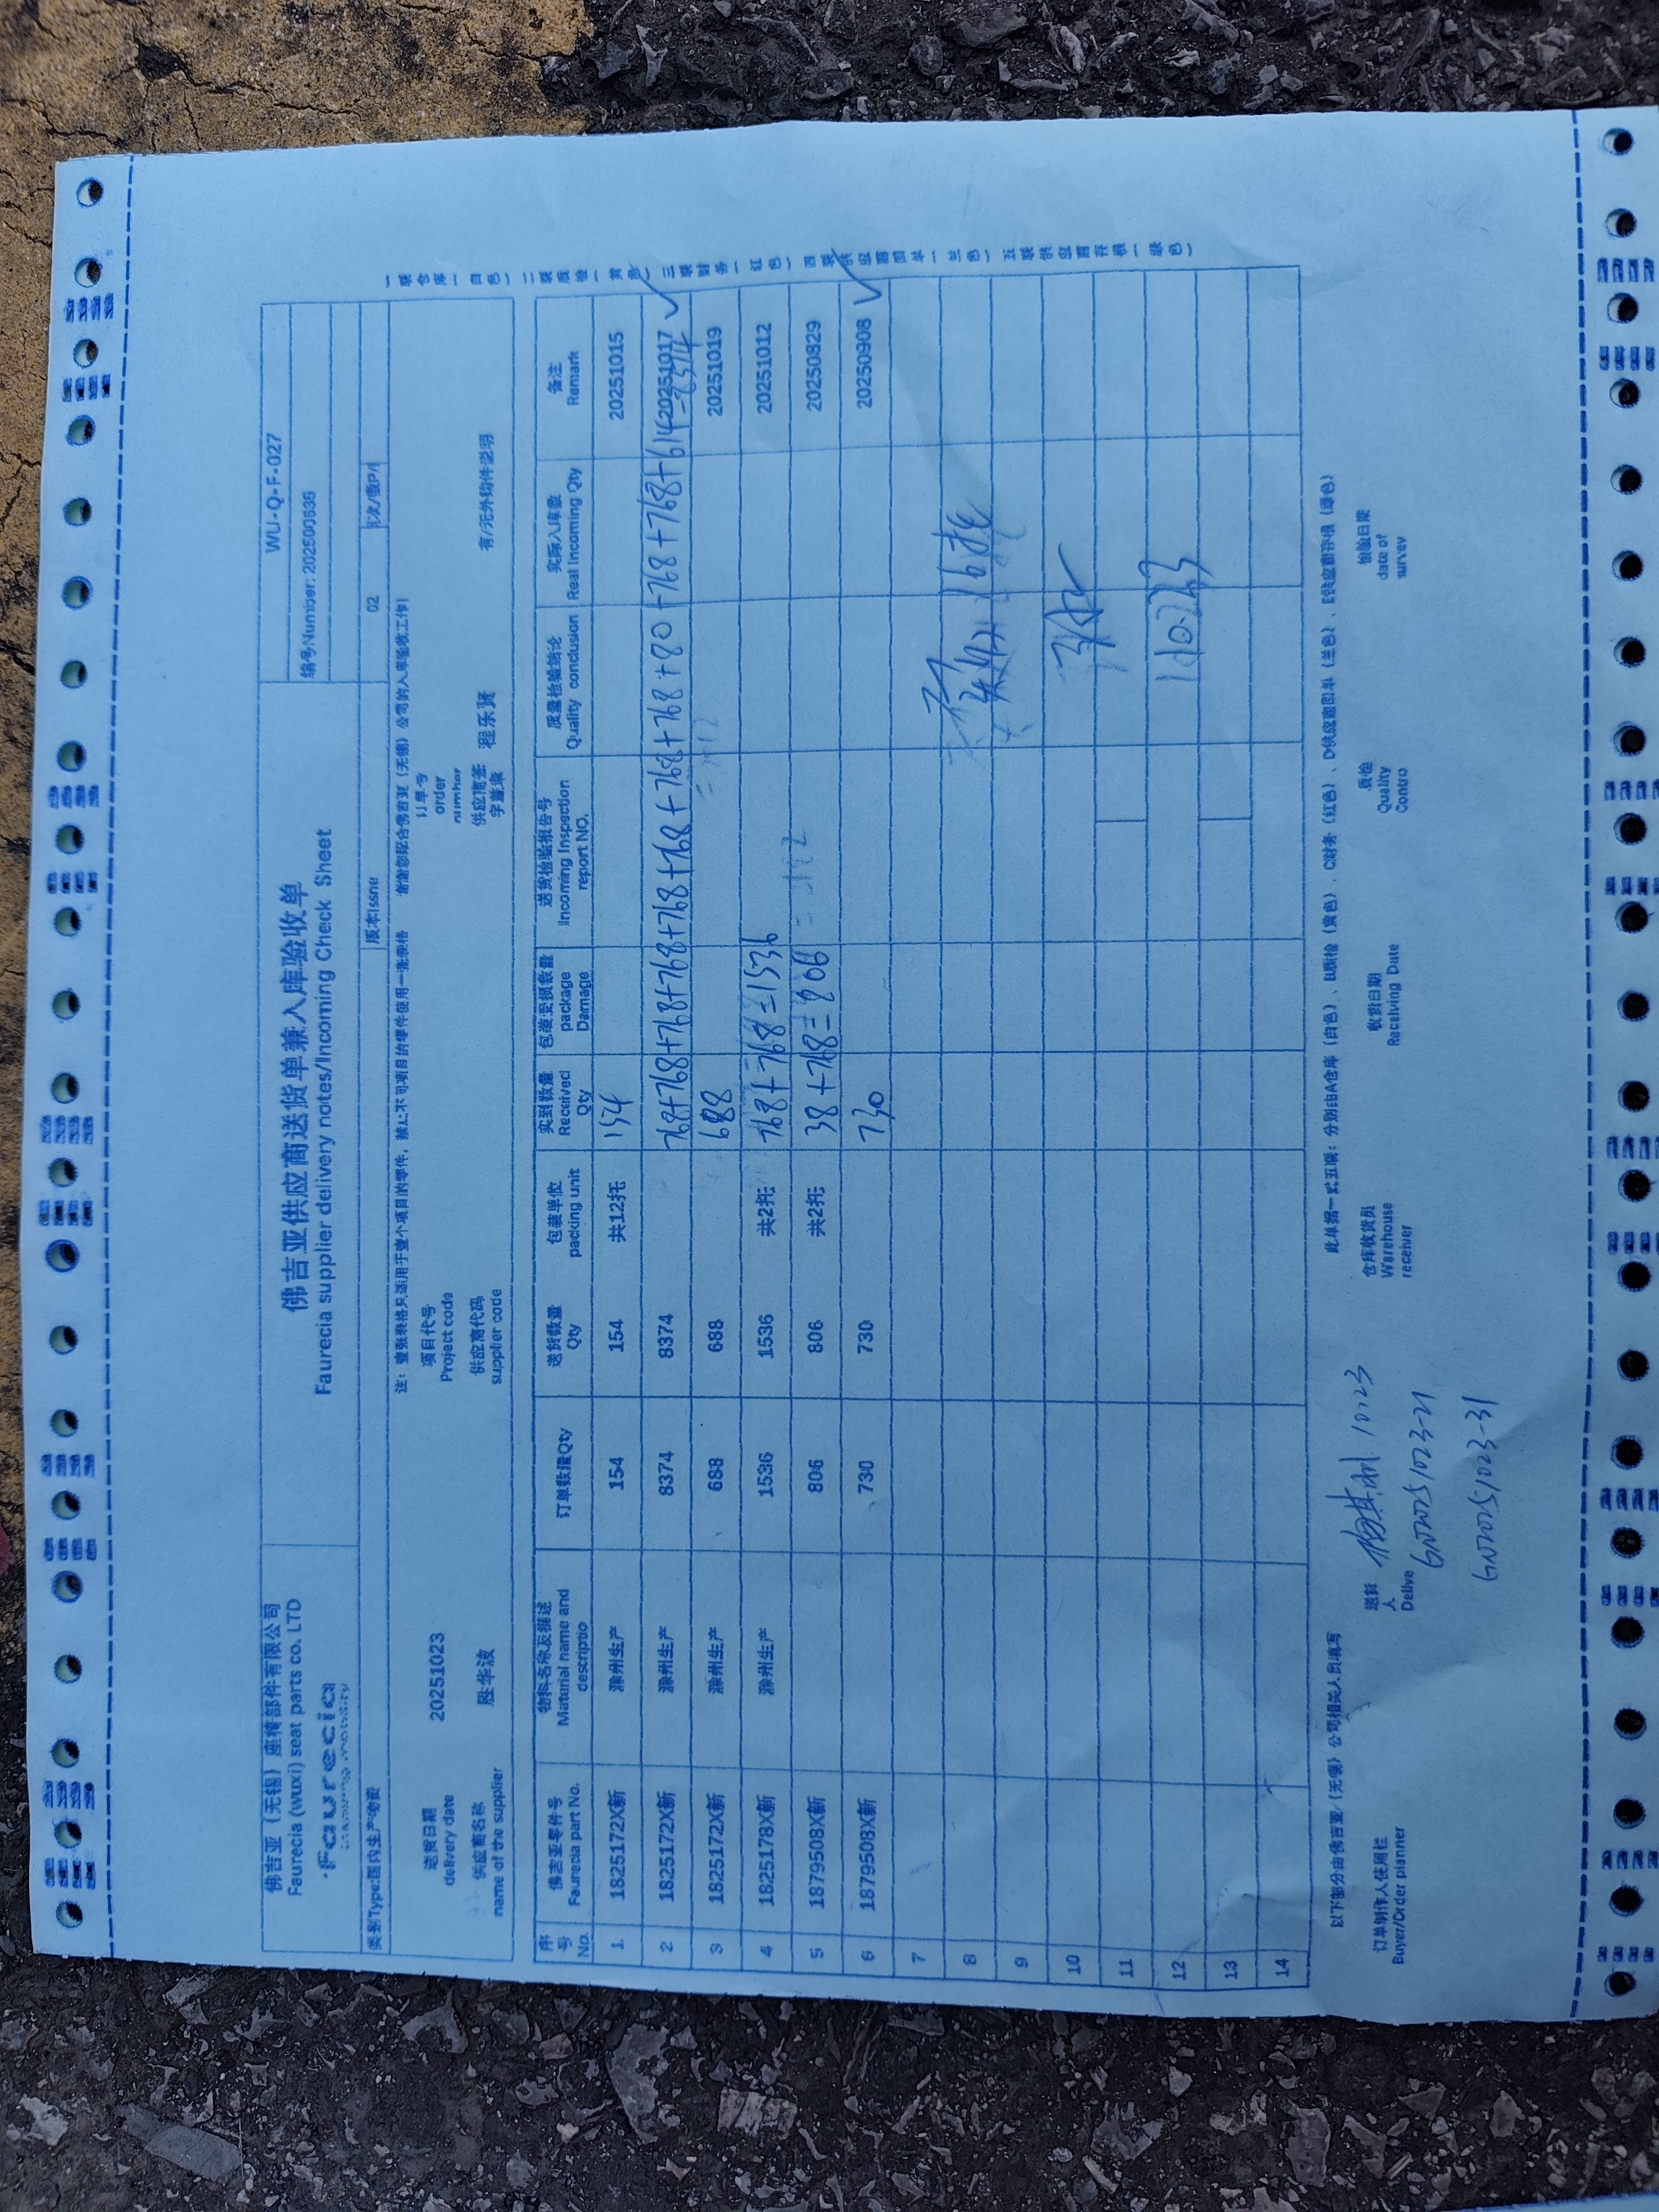 佛吉亚（无锡）座椅部件有限公司
Faurecia (wuxi) seat parts co. LTD
faurecia
佛吉亚供应商送货单兼入库验收单
Faurecia supplier delivery notes/Incoming Check Sheet
WU-Q-F-027
编号Number: 202500835
类别Type:国内生产物资 版本Issne 02
注：壹张表格只适用于壹个项目的零件，禁止不同项目的零件使用一张表格 谢谢您配合佛吉亚（无锡）公司的入库验收工作！
送货日期 20251023 项目代号 订单号
delivery date Project code order number
供应商名称 胜华波 供应商代码 供应商签字盖章 程乐贤 有/无外购件说明
name of the supplier supplier code
序号 佛吉亚零件号 物料名称及描述 订单数量Qty 送货数量 包装单位 实到数量 包装受损数量 送货检验报告号 质量检验结论 实际入库数 备注
No. Faurecia part No. Material name and descriptio Qty packing unit Received Qty package Damage Incoming Inspection report NO. Quality conclusion Real Incoming Qty Remark
1 1825172X新 滁州生产 154 154 共12托 154 20251015
2 1825172X新 滁州生产 8374 8374 768+768+768+768+768+768+768+768+80+768+768+614=8374 20251017
3 1825172X新 滁州生产 688 688 688 20251019
4 1825178X新 滁州生产 1536 1536 共2托 768+768=1536 20251012
5 1879508X新 806 806 共2托 38+768=806 20250829
6 1879508X新 730 730 730 20250908
7
8
9
10
11
12
13
14
16托
10.23
一联仓库（白色）二联质检（黄色）三联财务（红色）四联供应商回单（兰色）五联供应商存根（绿色）
以下部分由佛吉亚（无锡）公司相关人员填写 此单据一式五联：分别由A仓库（白色）、B质检（黄色）、C财务（红色）、D供应商回单（兰色）、E供应商存根（绿色）
订单制作人使用栏 送货人 仓库收货员 收货日期 质检 检验日期
Buyer/Order planner Delive Warehouse receiver Receiving Date Quality Contro date of survey
1023